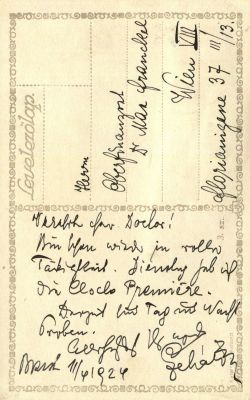 Levelezőlap.
Herrn
Oberfinanzrat
Dr Max Franckel
Wien VIII
Florianigasse 37
III/13.
Verehrter Herr Doctor!
Bin schon wieder in voller
Tätigkeit. Dienstag hab ich
die Cloclo Première.
Derzeit bei Tag und Nacht
Proben.
Herzlichst Ihr
Lehár
11/4 1924